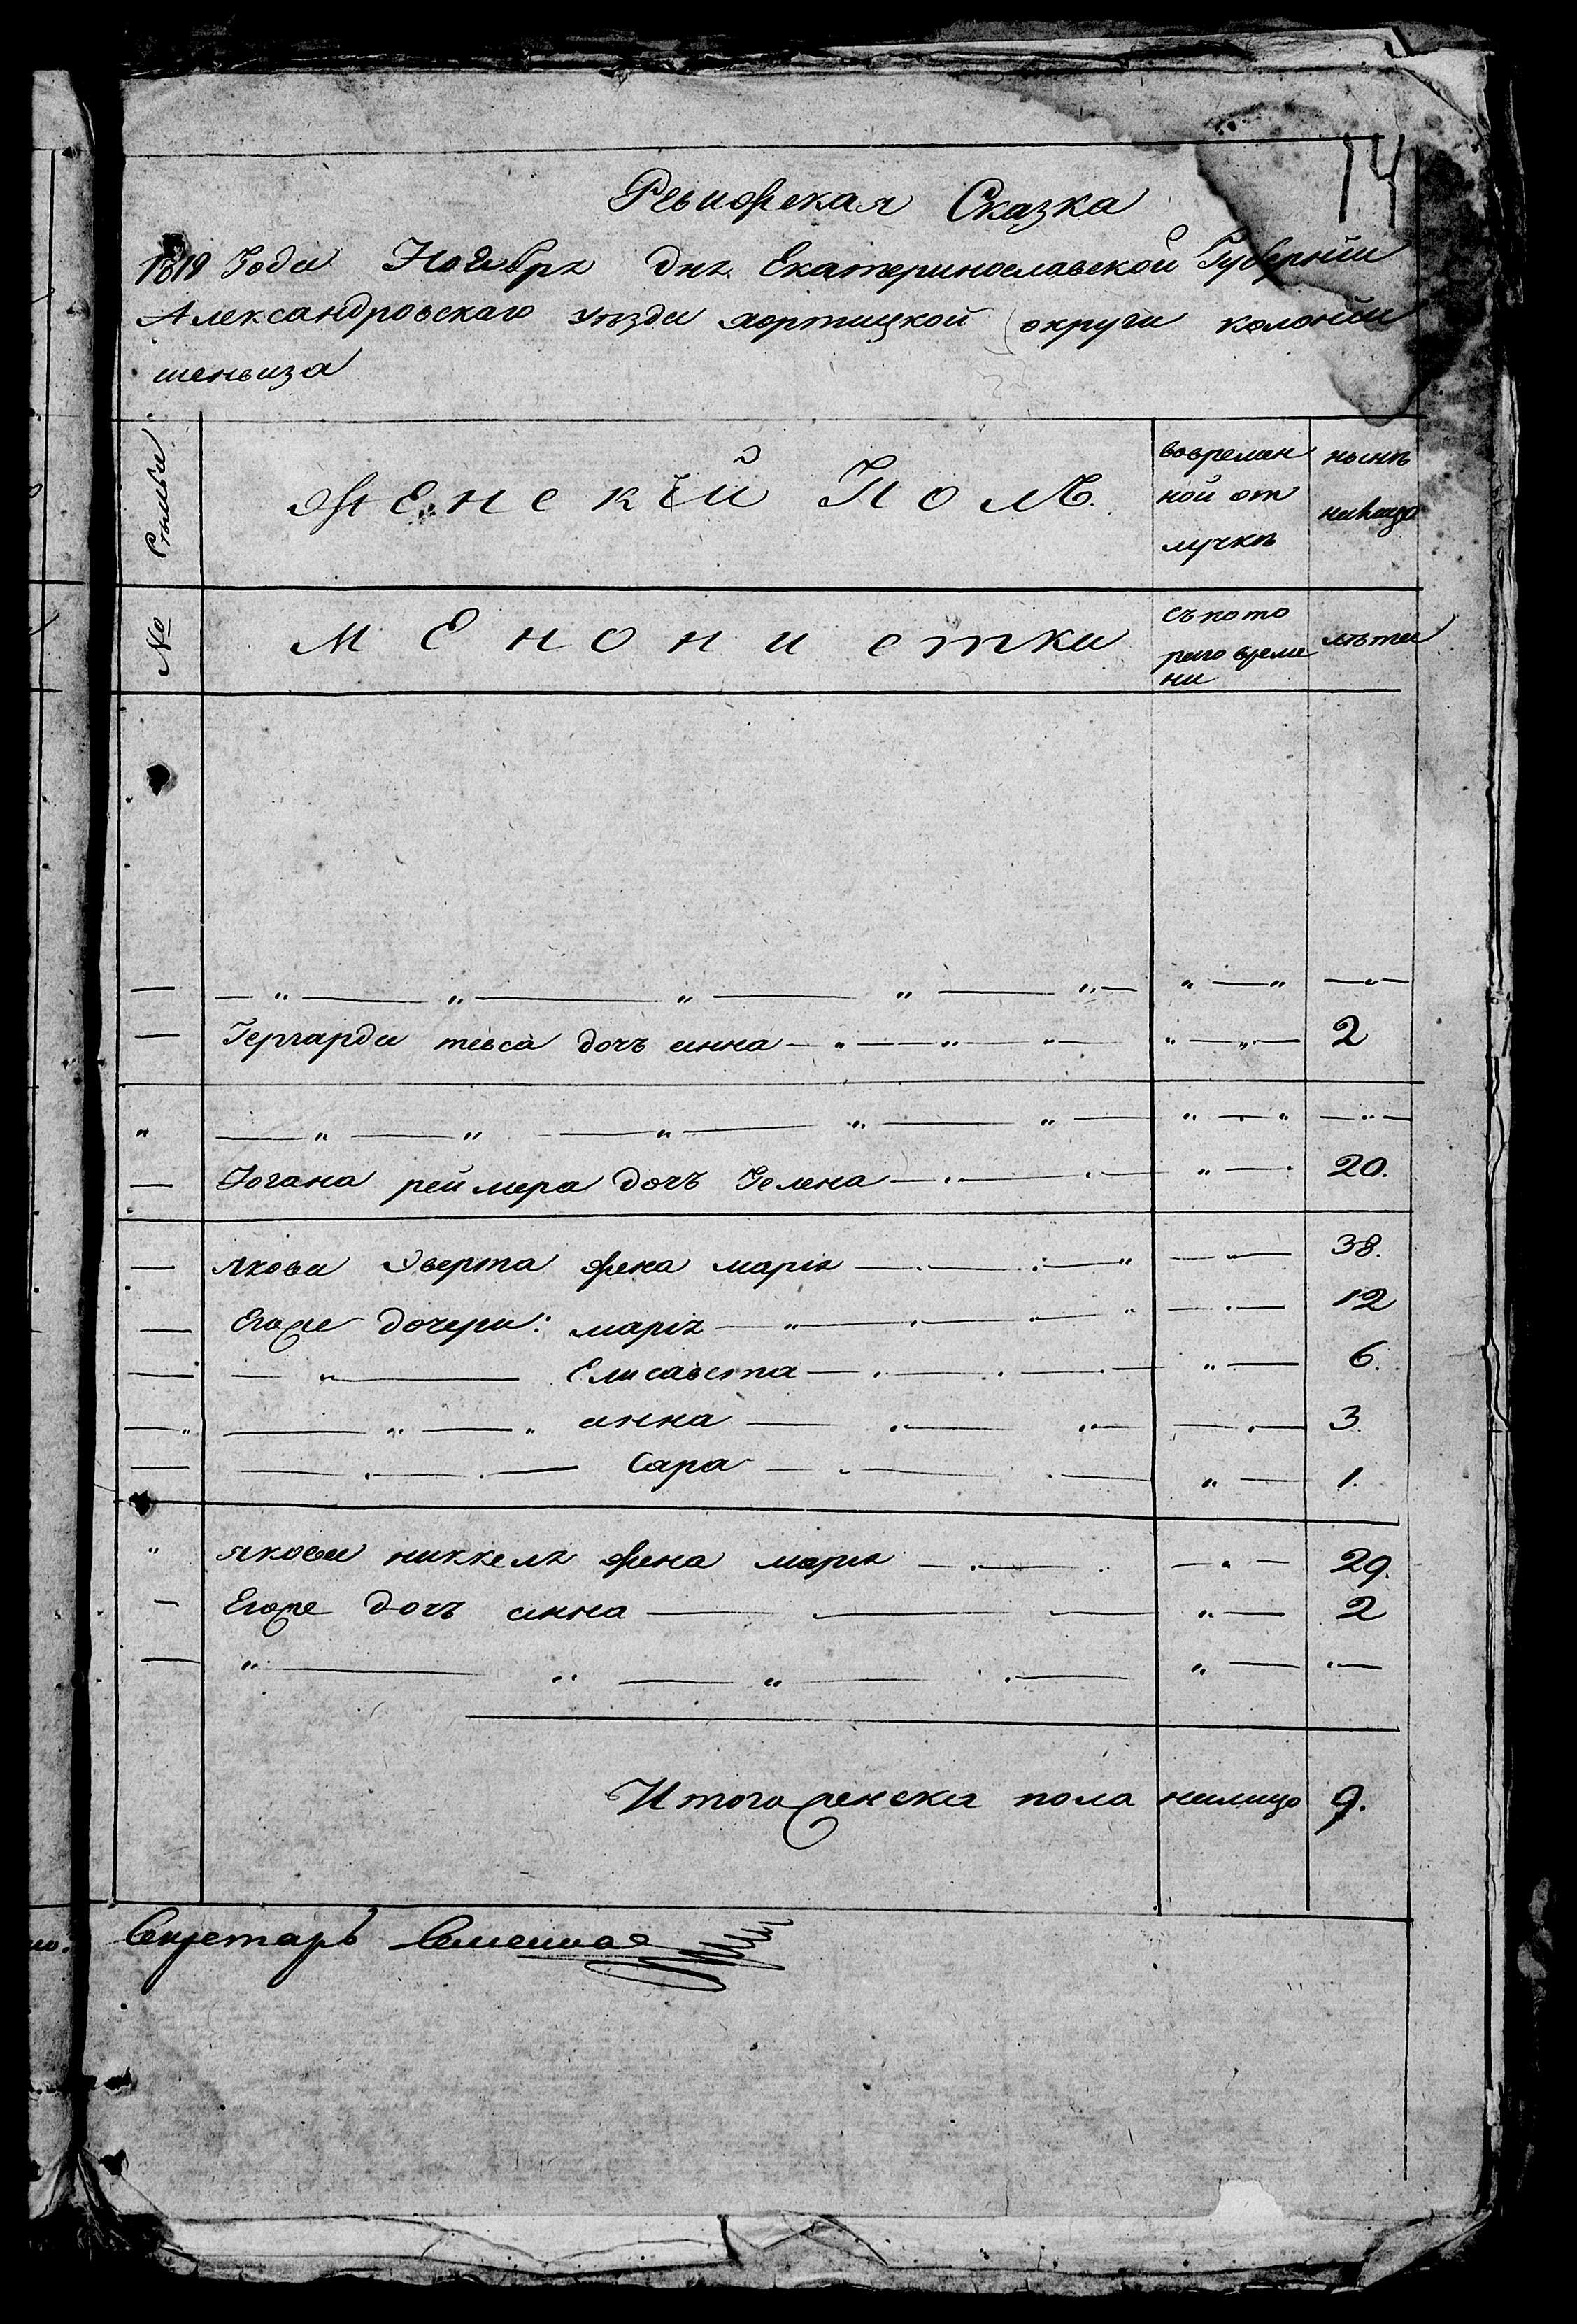 14
Ревизская Сказка
1819 Года Ноября дня Екатеринославской Губернiи
Александровскаго уѣзда хортицкой округи колонiи
шенвиза
Семьи
женскiй Полъ.
вовремян
ной от
лучкѣ
нынѣ
налицо
№
Менонистки
съ кото
раго време
ни
лѣта
— „ — „ — „ — „ — „ — „ — „ — „ —
— Гергарда тевса дочъ анна — „ — „ — „ — „ — „ — 2
„ — „ — „ — „ — „ — „ — „ — „ — „ —
— Iогана реимера дочъ Гелена — „ — „ — „ — 20.
— якова Эверта жена марiя — „ — „ — „ — 38.
— Егоже дочери: марiя — „ — „ — „ — 12
— — „ — Елисавета — „ — „ — „ — 6.
— „ — „ — „ анна — „ — „ — „ — 3.
— — „ — „ — Сара — „ — „ — „ — 1.
„ якова никкеля жена марiя — „ — „ — 29.
— Егоже дочъ анна — „ — „ — 2
— „ — „ — „ — „ — „ — „ —
Итого женска пола налицо 9.
Секретарь